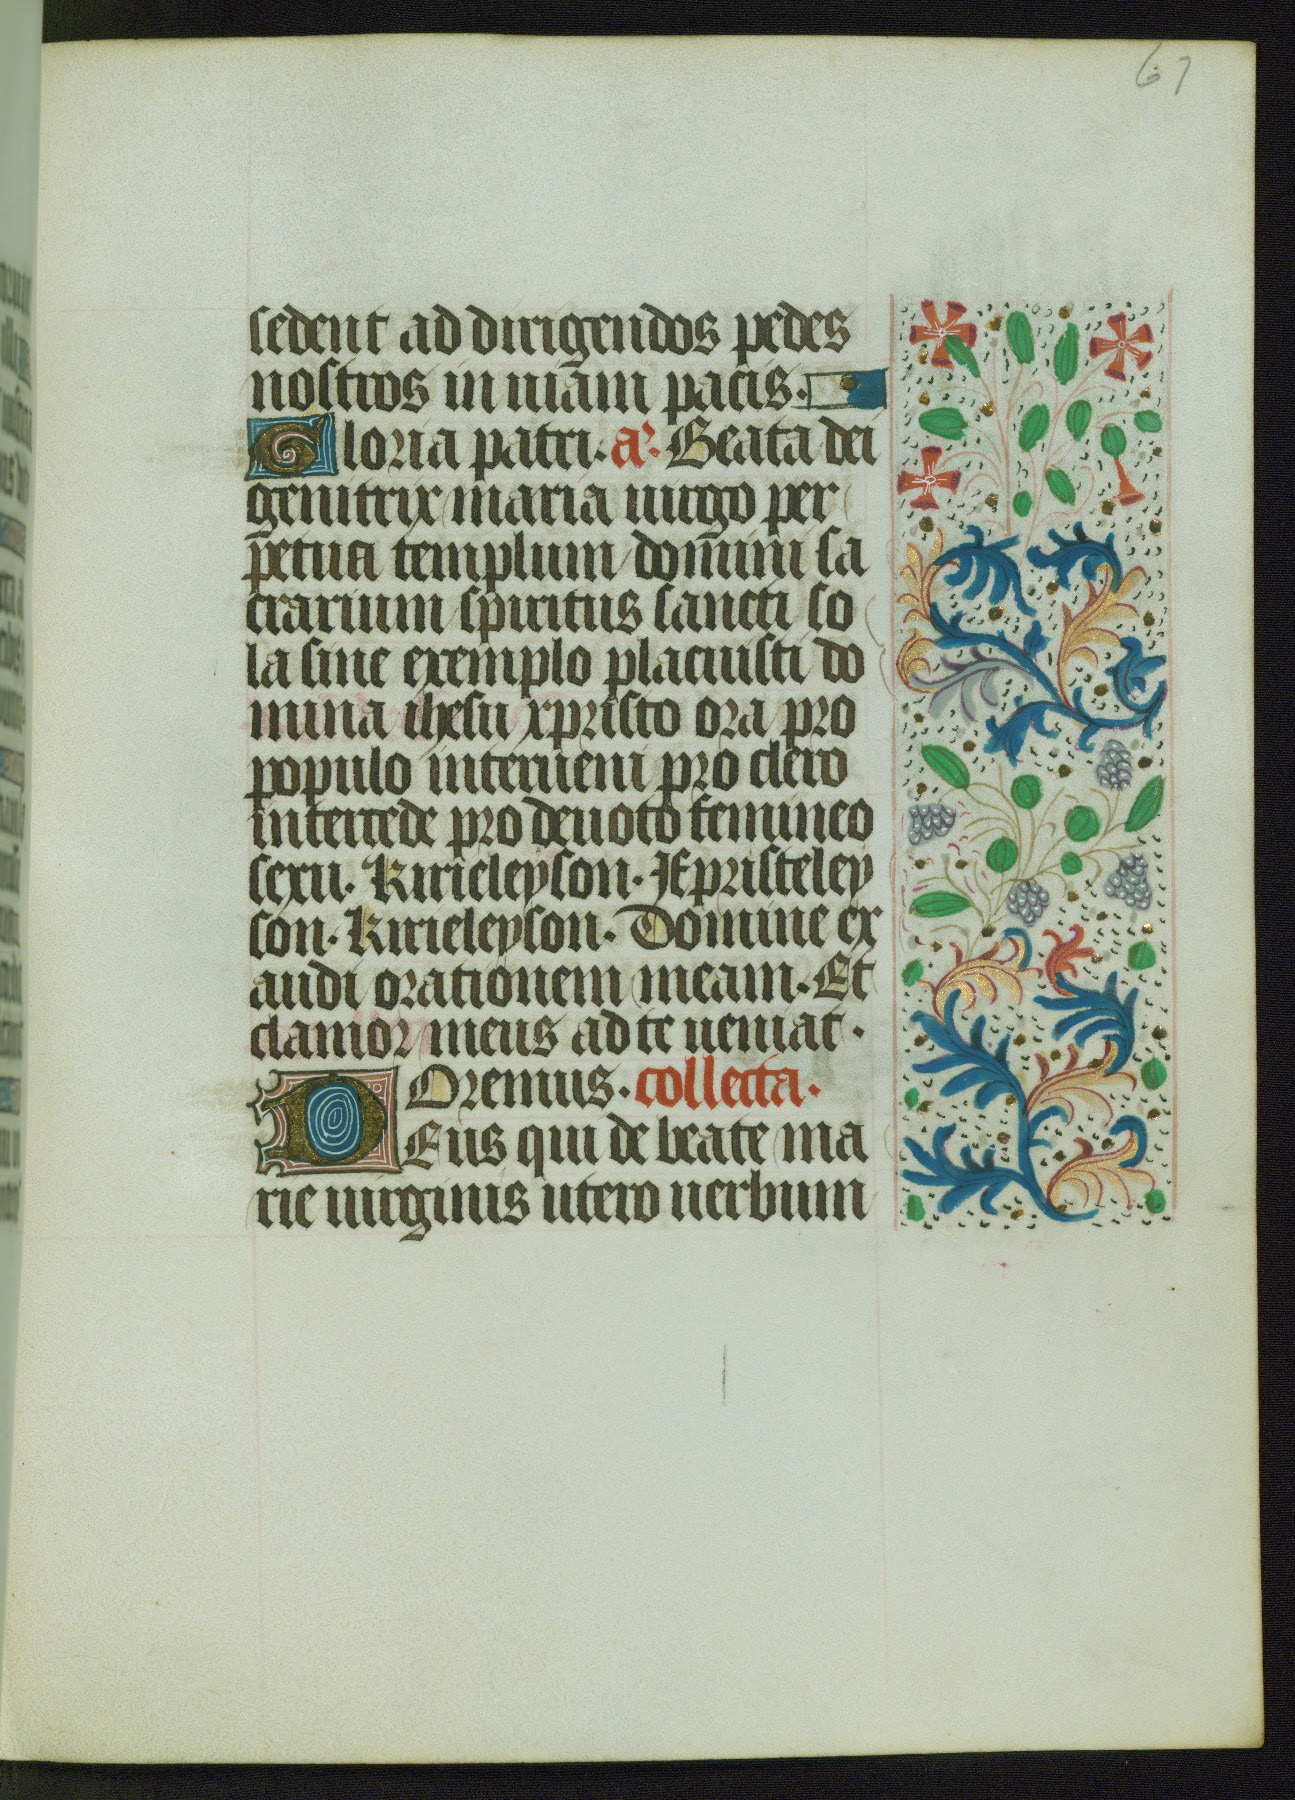 67
sedent ad dirigendos pedes
nostros in uiam pacis.
Gloria patri. a'. Beata dei
genitrix maria uirgo per
petua templum domini sa
crarium spiritus sancti so
la sine exemplo placuisti do
mina ihesu xpristo ora pro
populo interueni pro clero
intercede pro deuoto femineo
sexu. Kirieleyson. Xpristeley
son. Kirieleyson. Domine ex
audi orationem meam. Et
clamor meus ad te ueniat.
Oremus. collecta.
DEus qui de beate ma
rie uirginis utero uerbum